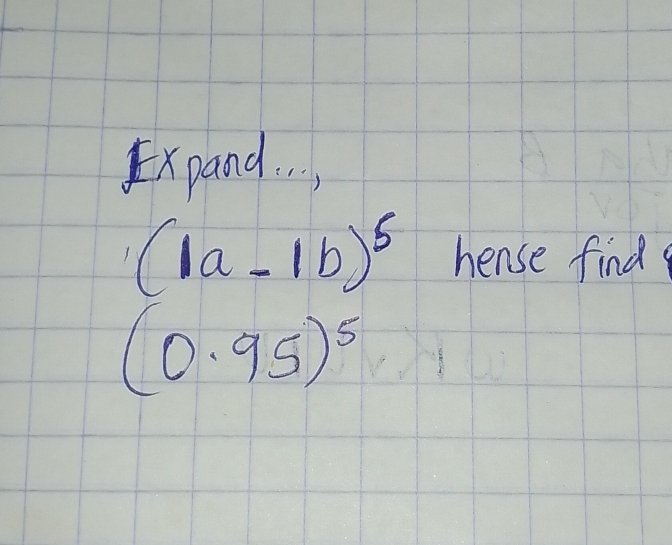 Expand...,
(1a - 1b)⁵ hense find
(0.95)⁵